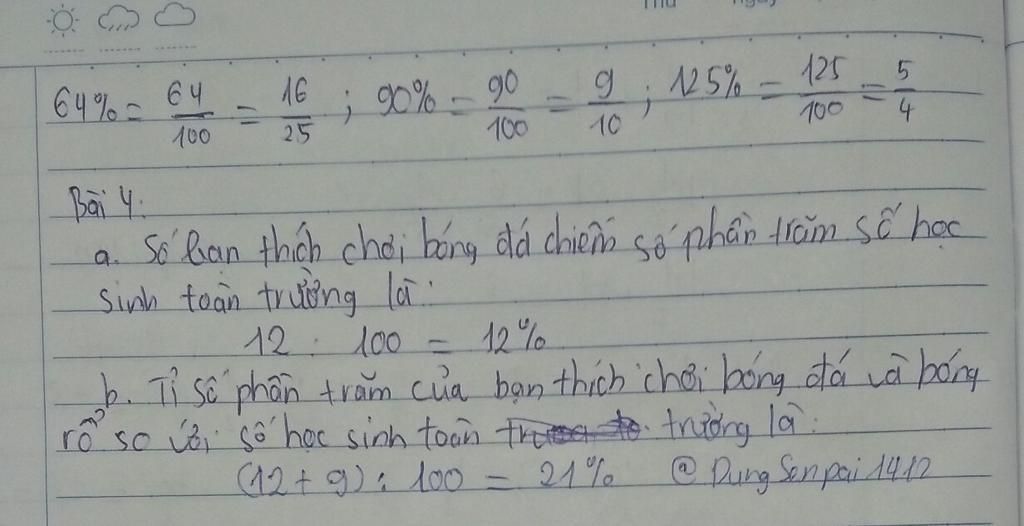 64% = 64/100 = 16/25 ; 90% = 90/100 = 9/10 ; 125% = 125/100 = 5/4
Bài 4:
a. Số bạn thích chơi bóng đá chiếm số phần trăm số học
sinh toàn trường là:
12 : 100 = 12%
b. Tỉ số phần trăm của bạn thích chơi bóng đá và bóng
rổ so với số học sinh toàn trường là:
(12 + 9) : 100 = 21% @DungSenpai1412